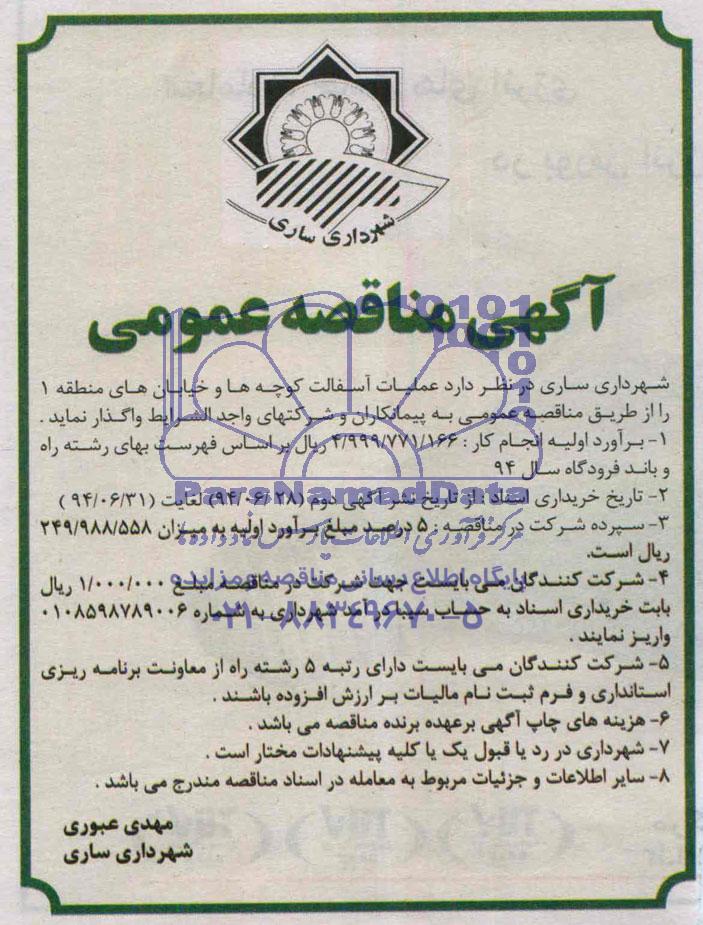 شهرداری ساری
آگهی مناقصه عمومی
شهرداری ساری در نظر دارد عملیات آسفالت کوچه ها و خیابان های منطقه ۱
را از طریق مناقصه عمومی به پیمانکاران و شرکتهای واجد الشرایط واگذار نماید .
۱- برآورد اولیه انجام کار : ۴/۹۹۹/۷۷۱/۱۶۶ ریال بر اساس فهرست بهای رشته راه
و باند فرودگاه سال ۹۴
۲- تاریخ خریداری اسناد : از تاریخ نشر آگهی دوم (۹۴/۰۶/۰۲۸) لغایت (۹۴/۰۶/۳۱ )
۳- سپرده شرکت در مناقصه : ۵ درصد مبلغ برآورد اولیه به میزان ۲۴۹/۹۸۸/۵۵۸
ریال است.
۴- شرکت کنندگان می بایست جهت شرکت در مناقصه مبلغ ۱/۰۰۰/۰۰۰ ریال
بابت خریداری اسناد به حساب سیبا درآمد شهرداری به شماره ۰۱۰۸۵۹۸۷۸۹۰۰۶
واریز نمایند .
۵- شرکت کنندگان می بایست دارای رتبه ۵ رشته راه از معاونت برنامه ریزی
استانداری و فرم ثبت نام مالیات بر ارزش افزوده باشند .
۶- هزینه های چاپ آگهی برعهده برنده مناقصه می باشد .
۷- شهرداری در رد یا قبول یک یا کلیه پیشنهادات مختار است .
۸- سایر اطلاعات و جزئیات مربوط به معامله در اسناد مناقصه مندرج می باشد .
مهدی عبوری
شهرداری ساری
ParsNamadData
مرکز فرآوری اطلاعات پارس نماد داده
پایگاه اطلاع رسانی مناقصه و مزایده
۰۲۱-۸۸۳۴۹۶۷۰-۵